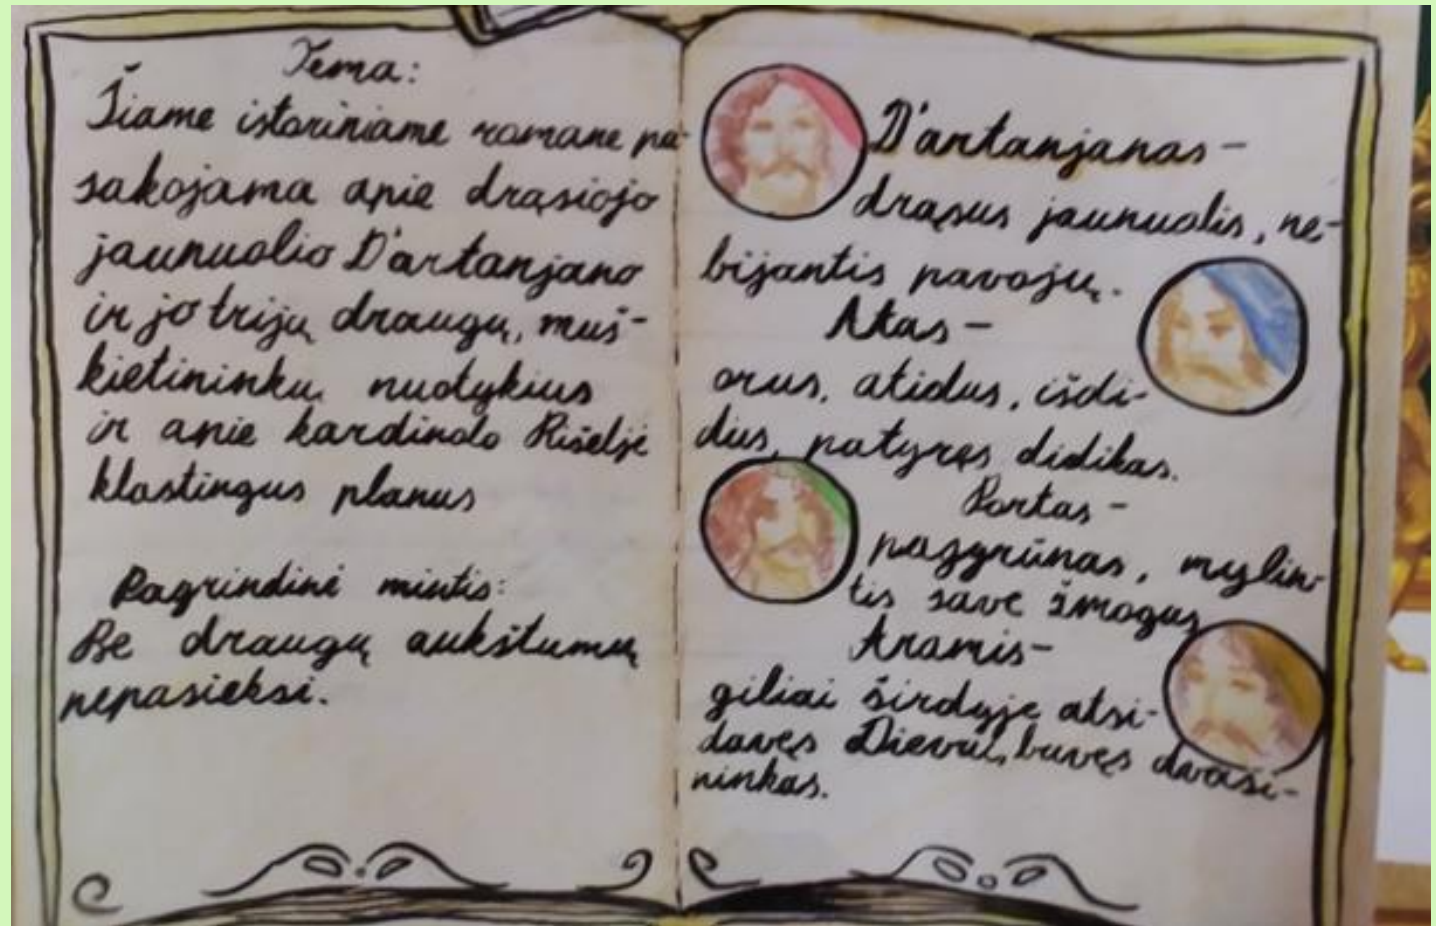 Tema:
Šiame istoriniame romane pa-
sakojama apie drąsiojo
jaunuolio D'artanjano
ir jo trijų draugų, muš-
kietininkų nuotykius
ir apie kardinolo Rišeljė
klastingus planus
Pagrindinė mintis:
Be draugų aukštumų
nepasieksi.
D'artanjanas-
drąsus jaunuolis, ne-
bijantis pavojų.
Atas-
orus, atidus, išdi-
dus, patyręs didikas.
Portas-
pagyrūnas, mylin-
tis save žmogus
Aramis-
giliai širdyje atsi-
davęs Dievui, buvęs dvasi-
ninkas.